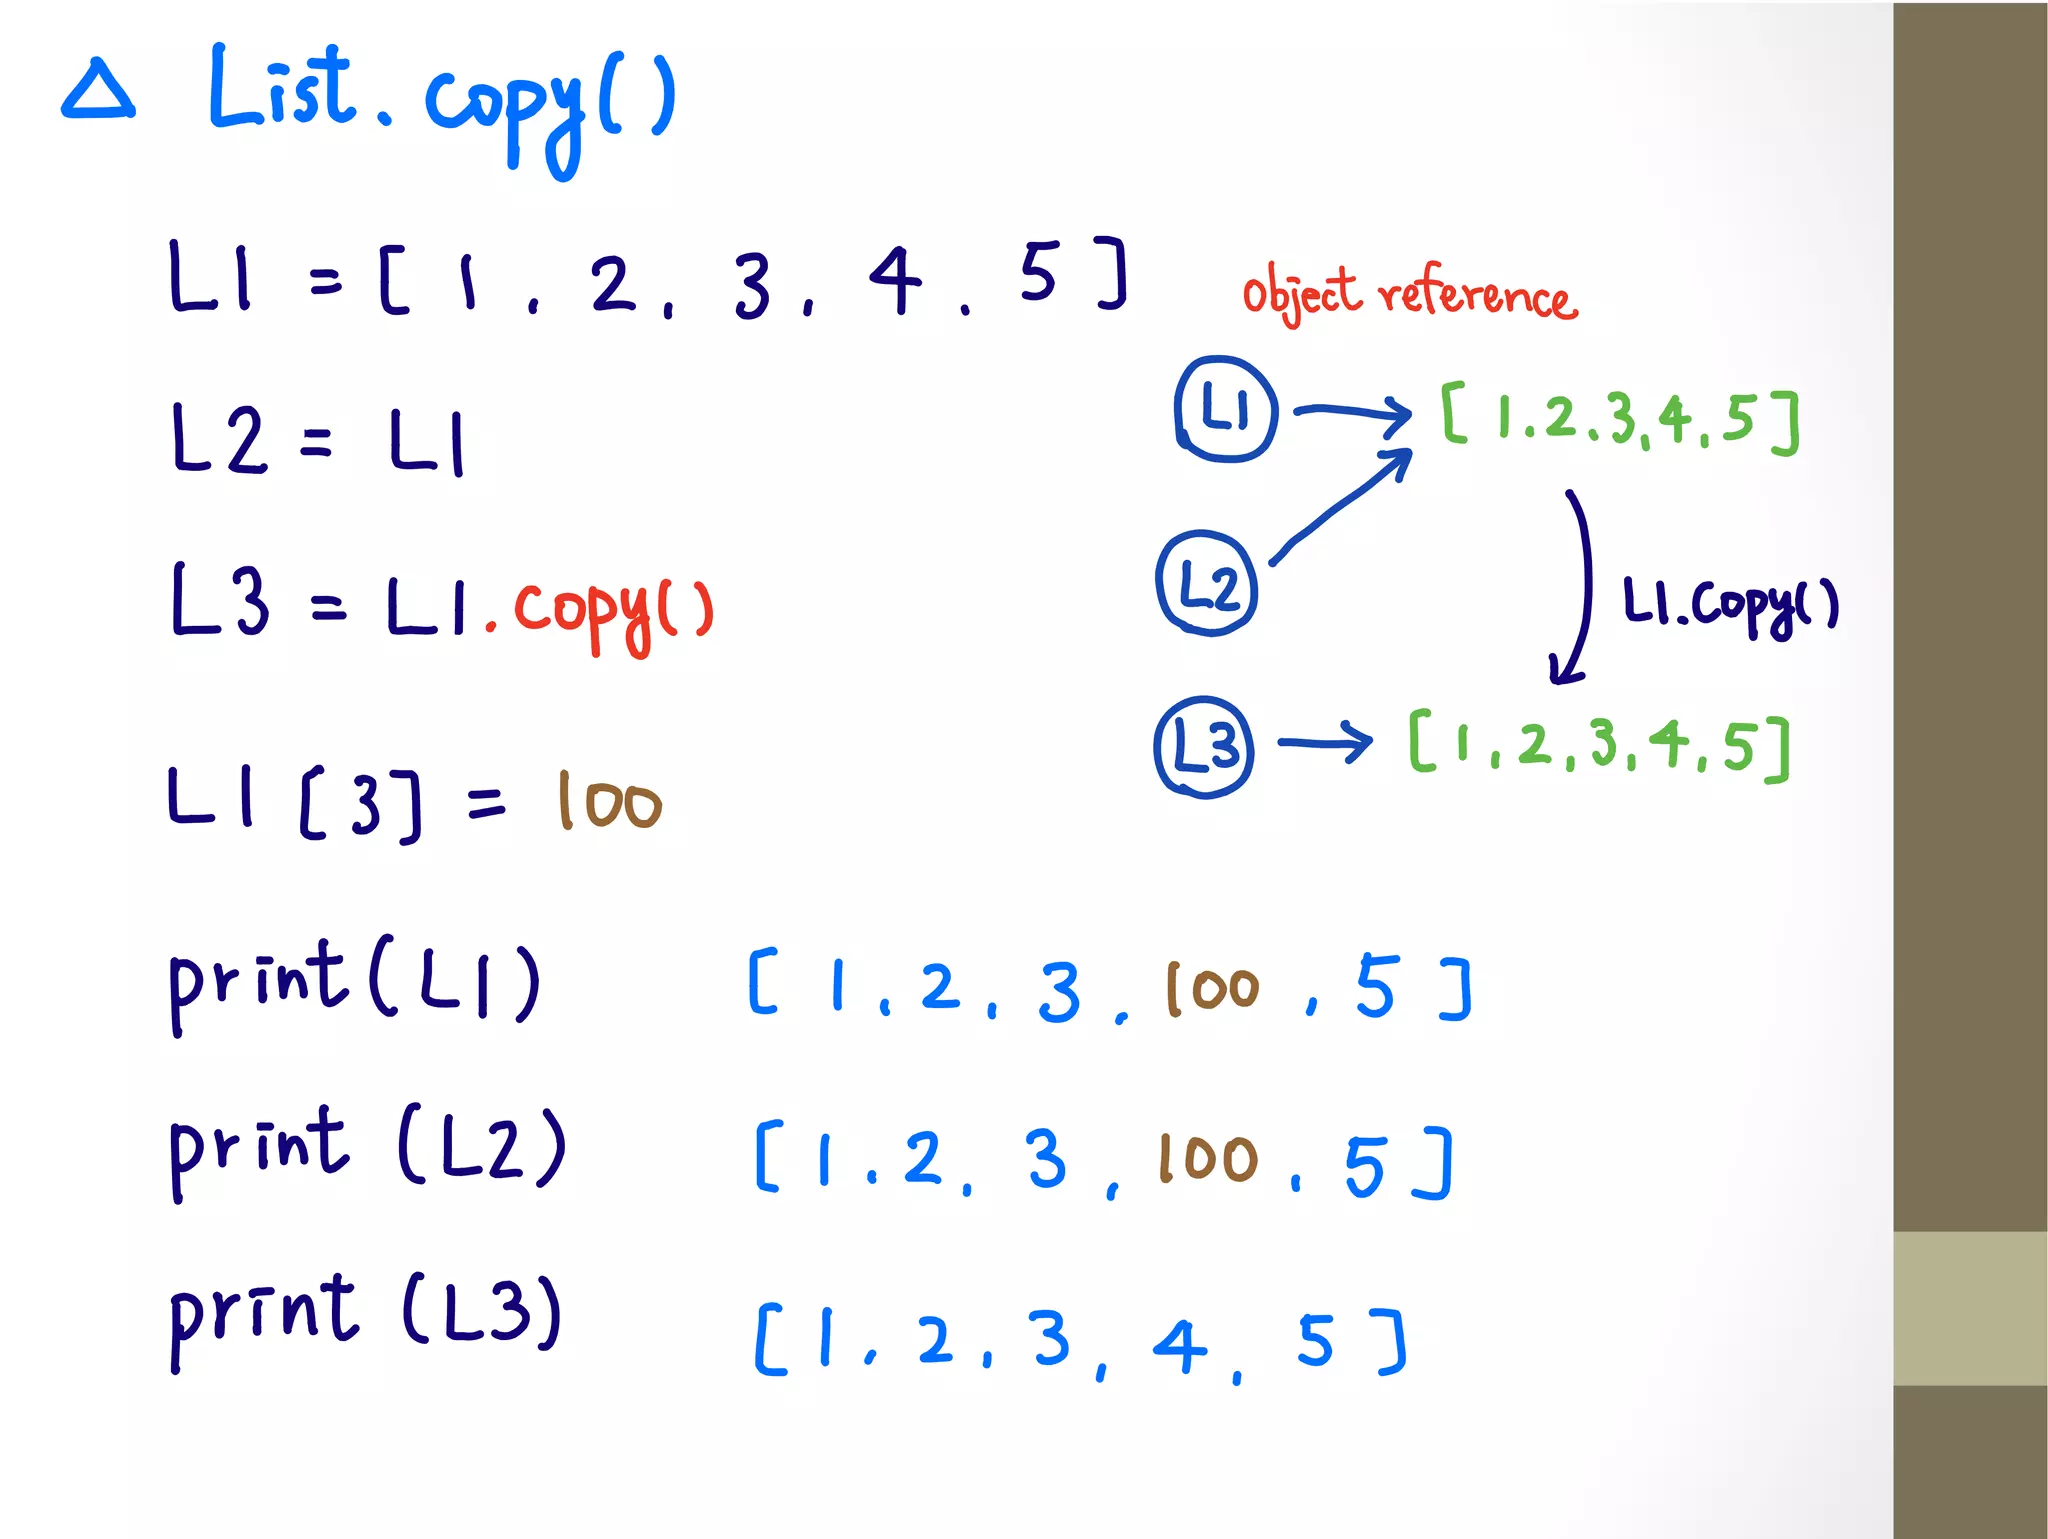 △ List.copy()
L1 = [ 1 , 2 , 3 , 4 , 5 ]
L2 = L1
L3 = L1.copy()
L1 [3] = 100
print(L1) [ 1 , 2 , 3 , 100 , 5 ]
print (L2) [ 1 , 2 , 3 , 100 , 5 ]
print (L3) [ 1 , 2 , 3 , 4 , 5 ]
object reference
L1 → [ 1.2.3,4,5 ]
L2
L1.copy()
L3 → [ 1,2,3,4,5 ]